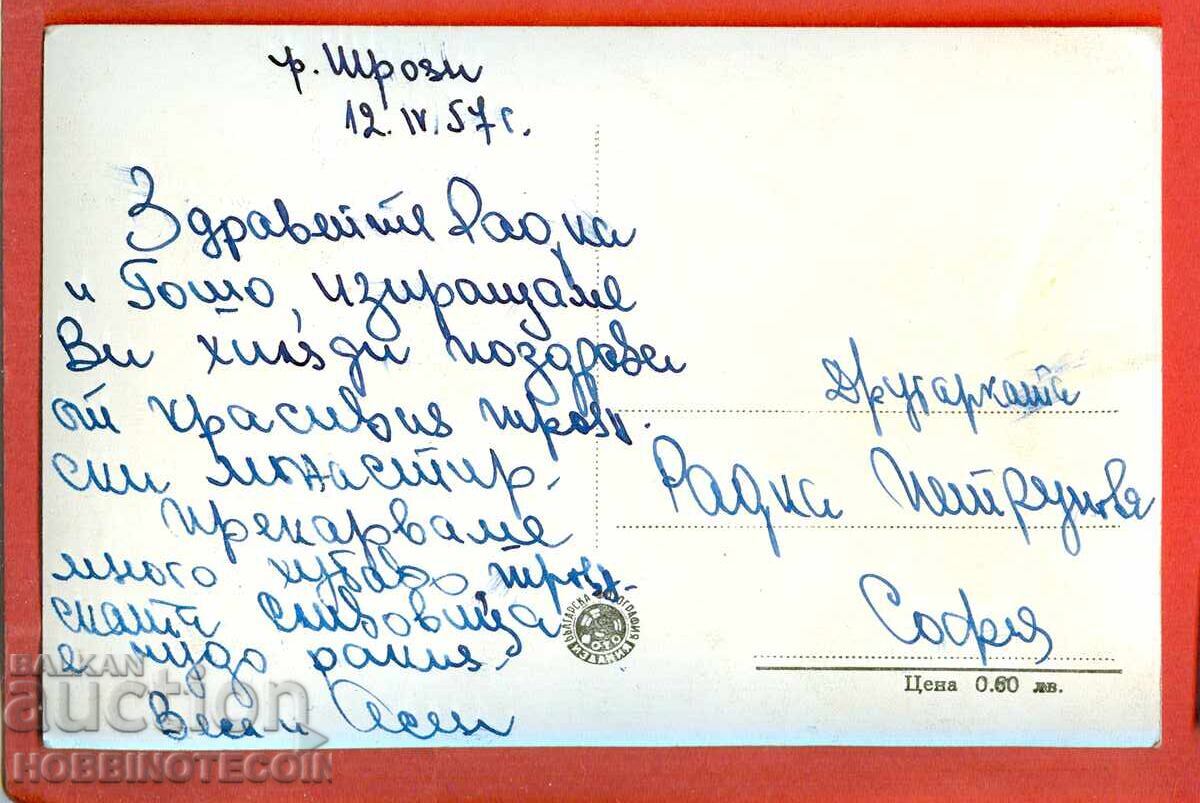 гр. Троян
12. IV. 57 г.
Здравейте Радка
и Гошо, изпращаме
Ви хиляди поздрави
от красивия троян-
ски монастир.
Прекарваме
много хубаво, троян-
ската сливовица
е чудо ракия.
Веси и Асен
Другарката
Радка Петрунова
София
БЪЛГАРСКА ФОТОГРАФИЯ
Цена 0.60 лв.
BALKAN
auction
HOBBINOTECOIN